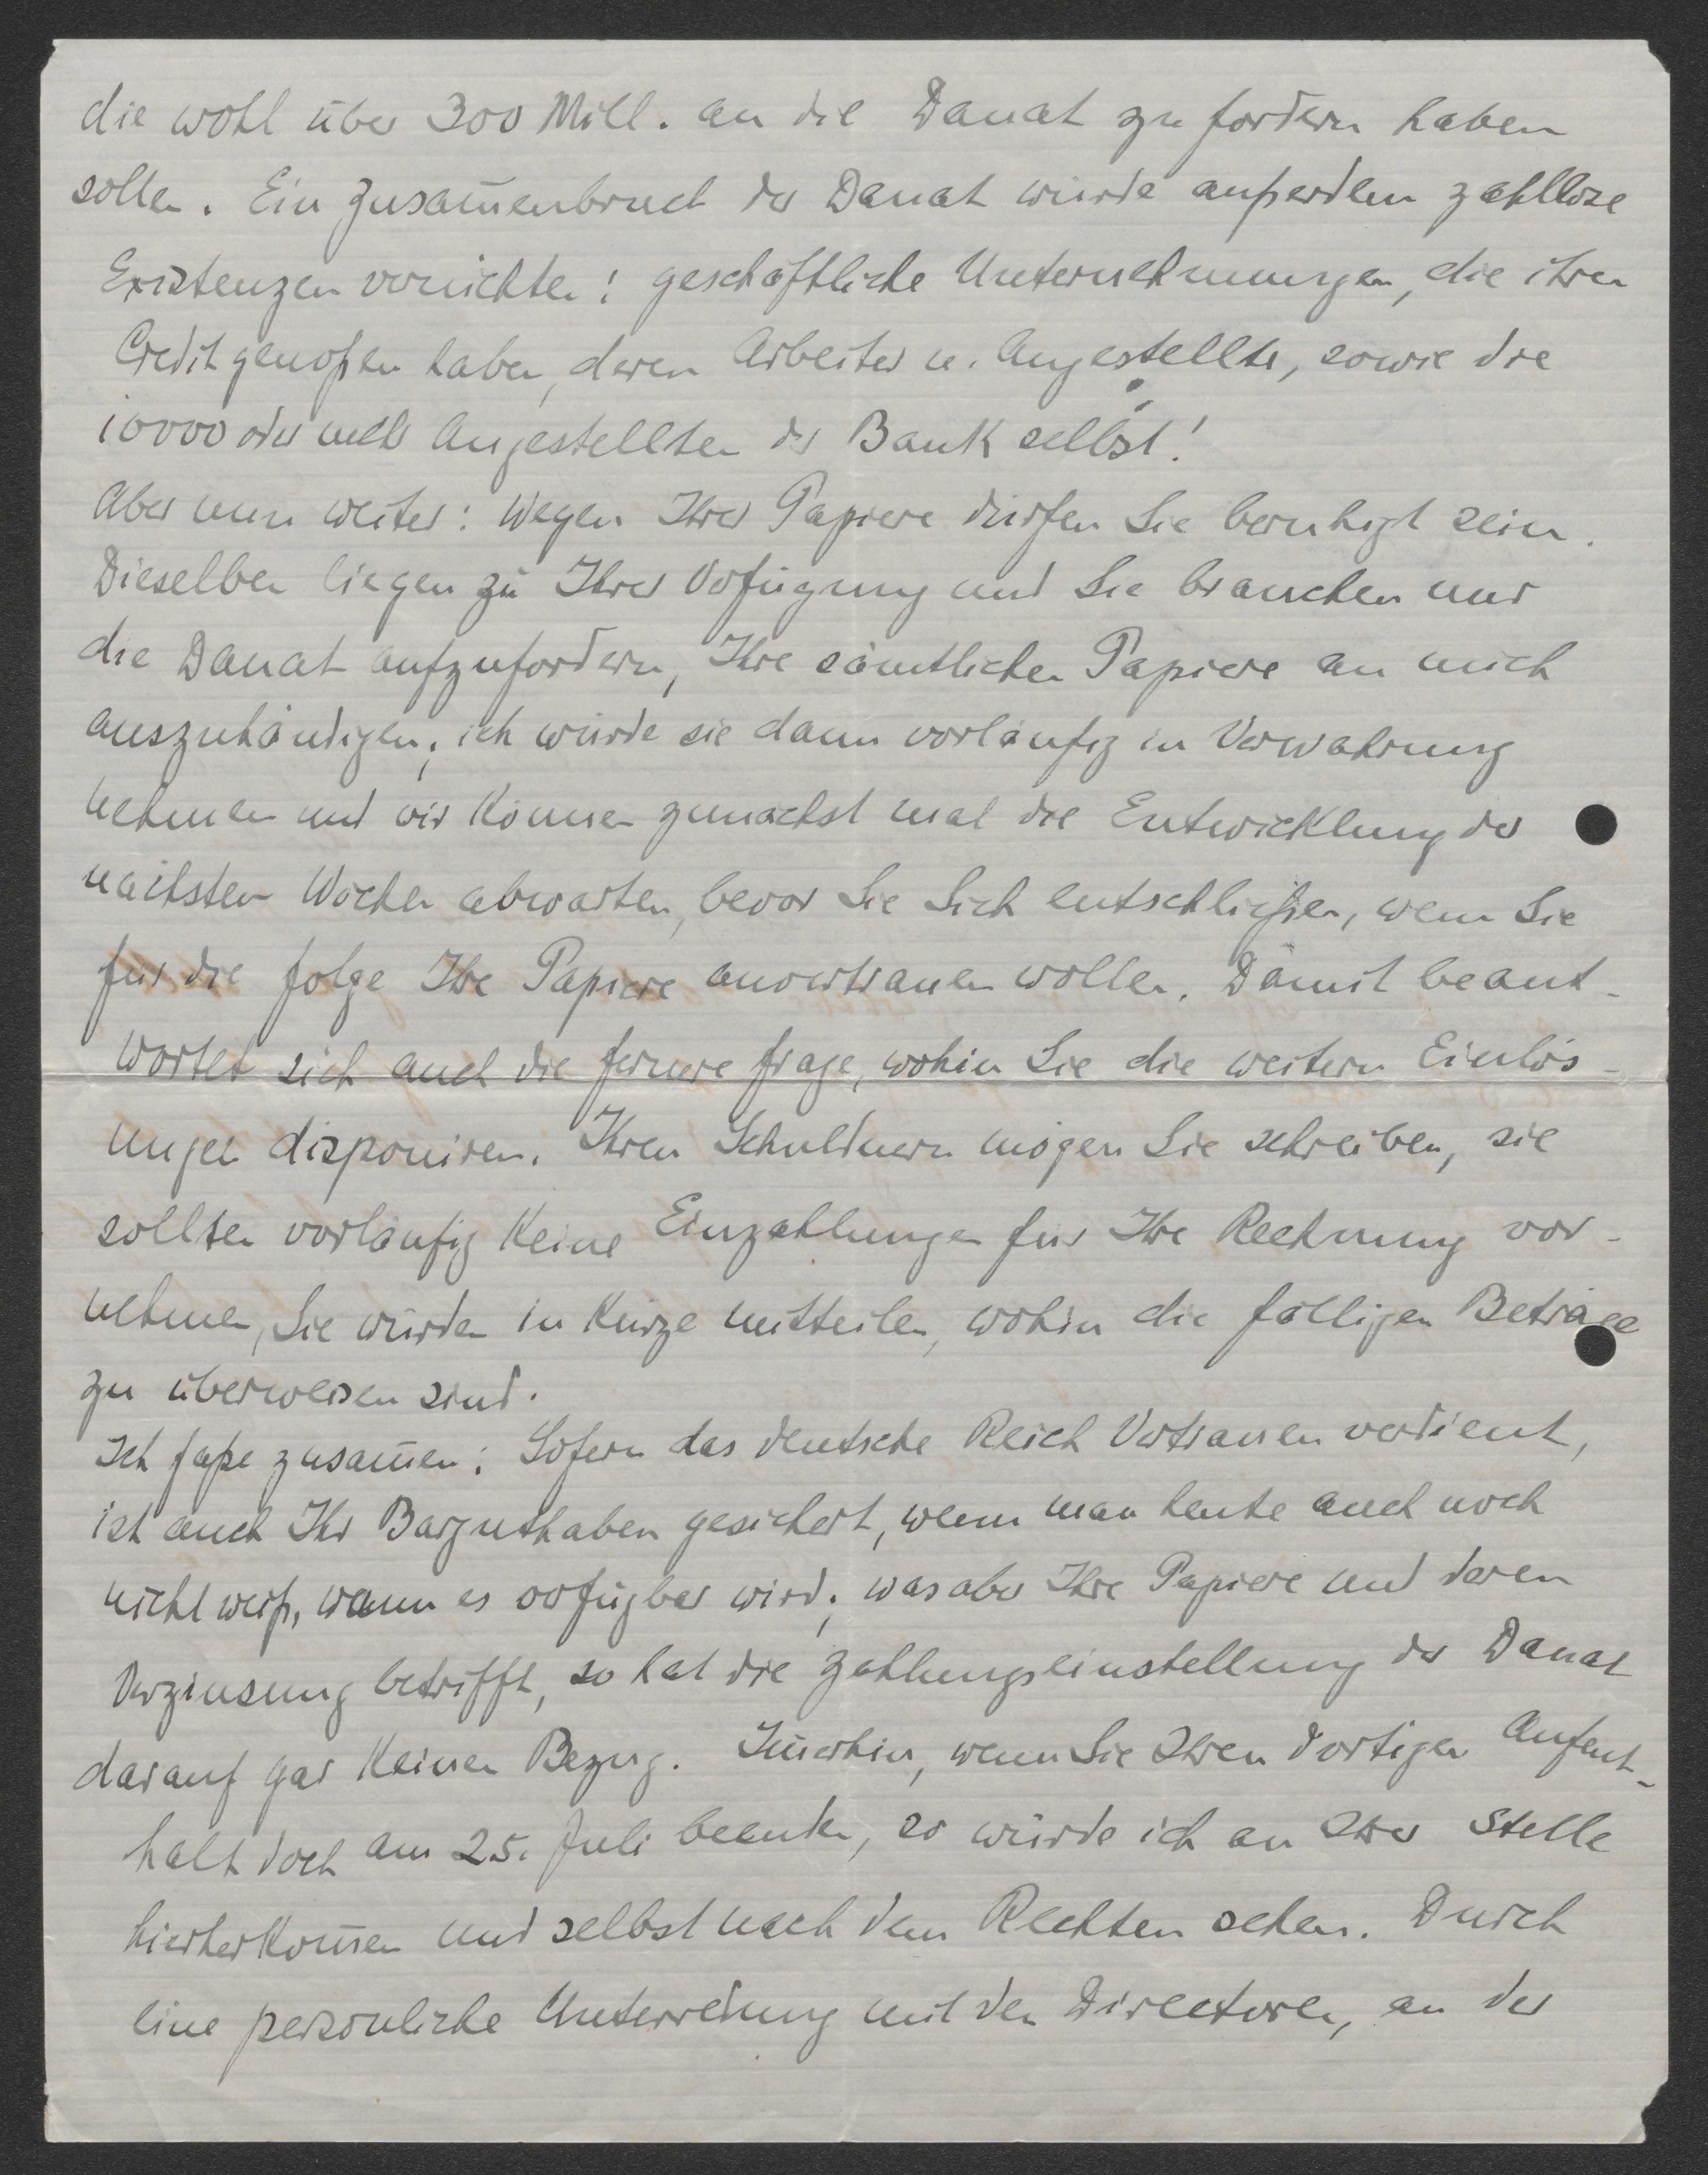 die wohl über 300 Mill. an die Danat zu fordern haben
sollen. Ein Zusam̄enbruch der Danat würde außerdem zahllose
Existenzen vernichten: geschäftliche Unternehmungen, die ihren
Credit genoßen haben, deren Arbeiter u. Angestellte, sowie die
10000 oder mehr Angestellten der Bank selbst!
Aber nun weiter: Wegen Ihrer Papiere dürfen Sie beruhigt sein.
Dieselben liegen zu Ihrer Verfügung und Sie brauchen nur
die Danat aufzufordern, Ihre sämtlichen Papiere an mich
auszuhändigen; ich würde sie dann vorläufig in Verwahrung
nehmen und wir können zunächst mal die Entwicklung der
nächsten Wochen abwarten, bevor Sie Sich entschließen, wem Sie
für die Folge Ihre Papiere anvertrauen wollen. Damit beant-
wortet sich auch die fernere Frage, wohin Sie die weitern Einlös-
ungen disponiren. Ihren Schuldnern mögen Sie schreiben, sie
sollten vorläufig keine Einzahlungen für Ihre Rechnung vor-
nehmen, Sie würden in Kürze mitteilen, wohin die fälligen Beträge
zu überweisen sind.
Ich faße zusam̄en: Sofern das deutsche Reich Vertrauen verdient,
ist auch Ihr Barguthaben gesichert, wenn man heute auch noch
nicht weiß, wann es verfügbar wird; was aber Ihre Papiere und deren
Verzinsung betrifft, so hat die Zahlungseinstellung der Danat
darauf gar keinen Bezug. Im̄erhin, wenn Sie Ihren dortigen Aufent-
halt doch am 25. Juli beenden, so würde ich an Ihrer Stelle
hierherkom̄en und selbst nach dem Rechten sehen. Durch
eine persönliche Unterredung mit den Directoren, an der